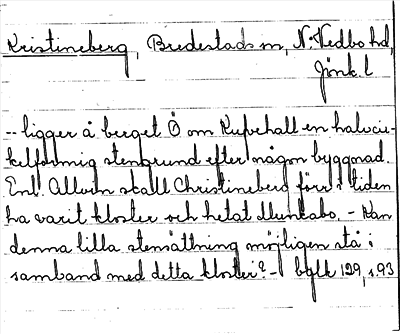 Kristineberg, Bredestads sn, N. Vedbo hd,
Jönk. l
-- ligger å berget Ö om Kupehall en halvcir-
kelformig stengrund efter någon byggnad.
Enl. Allvin skall Christineberg förr i tiden
ha varit kloster och hetat Munkabo. - Kan
denna lilla stensättning möjligen stå i
samband med detta kloster? - 129, s 93